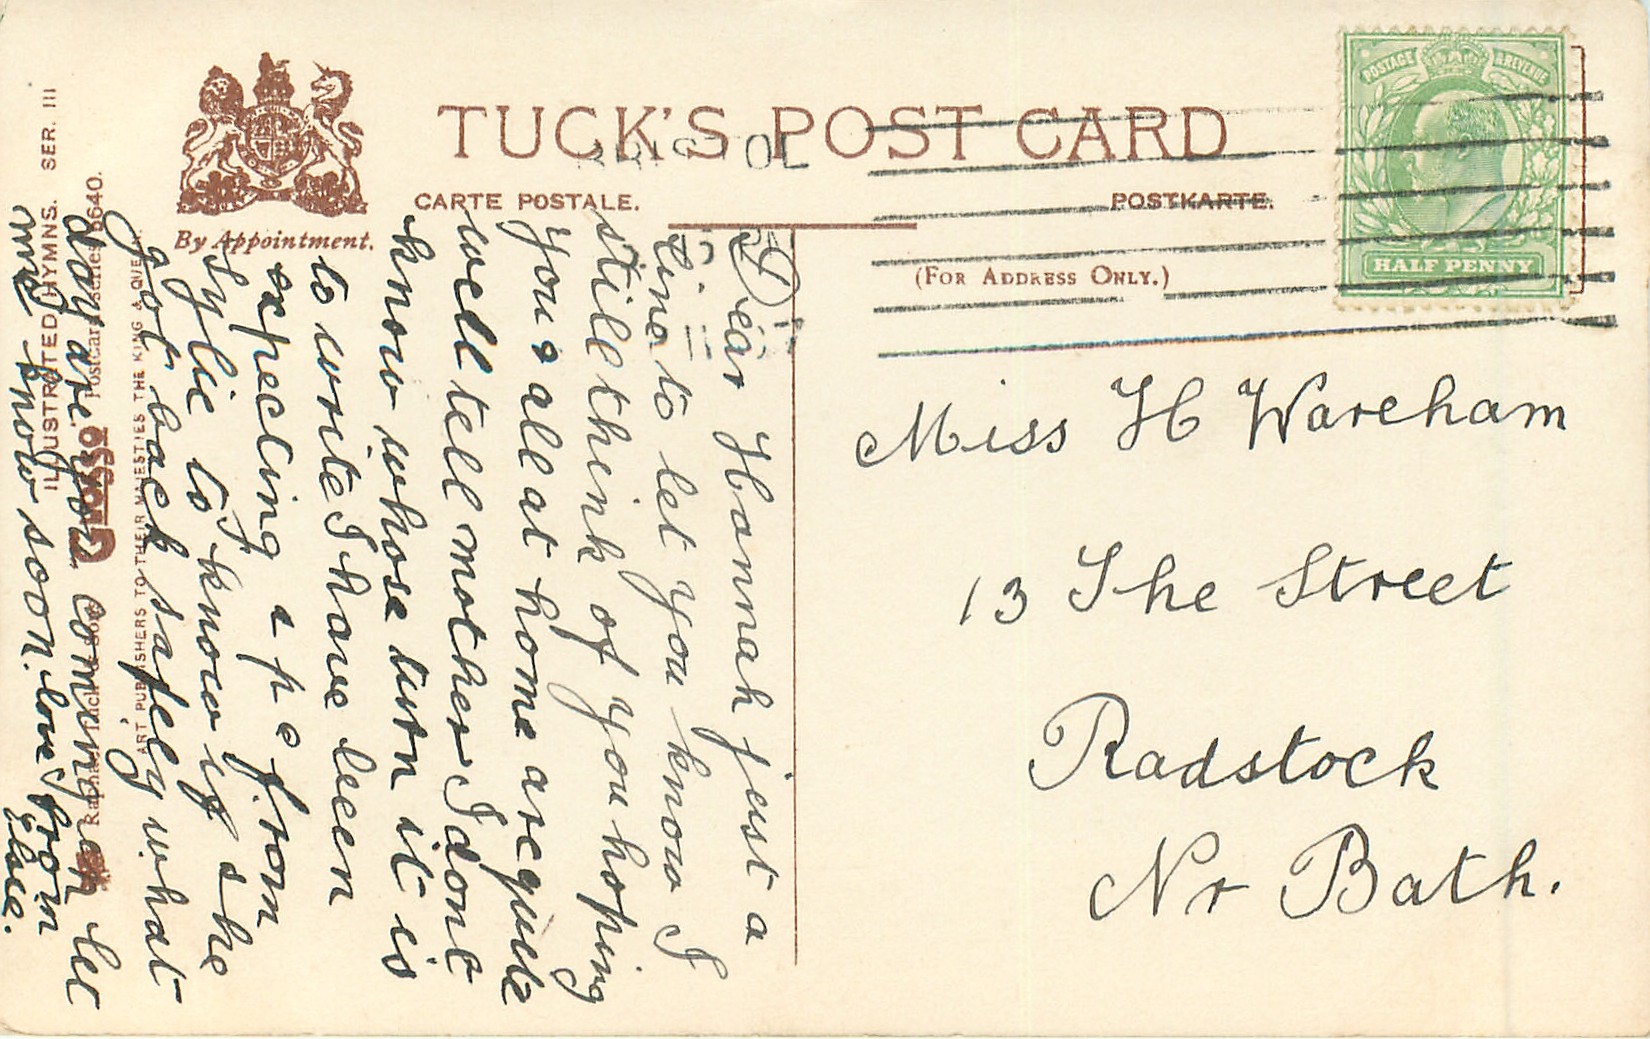 TUCK'S POST CARD
CARTE POSTALE.
POSTKARTE.
(FOR ADDRESS ONLY.)
By Appointment.
POSTAGE & REVENUE
HALF PENNY
Miss H Wareham
13 The Street
Radstock
Nr Bath.
Dear Hannah just a
line to let you know I
still think of you hoping
you & all at home are quite
well tell mother I dont
know whose turn it is
to write I have been
expecting a p c from
Sylie to know if she
got back safely what
day are you coming up let
me know soon. love from
Elsie.
ART PUBLISHERS TO THEIR MAJESTIES THE KING & QUEEN.
Raphael Tuck & Sons "GLOSSO" Postcard Series 8640.
ILLUSTRATED HYMNS. SER. III